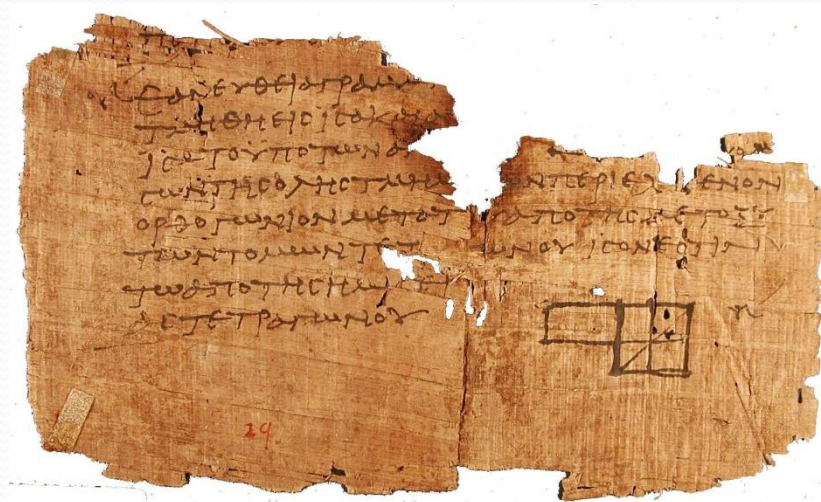 ΕΑΝΕΥΘΕΙΑΓΡΑΜ
ΤΜΗΘΗΕΙϹΙϹΑΚΑΙΑ
ΙϹΑΤΟΥΠΟΤΩΝΑ
ΤΩΝΤΗϹΟΛΗϹΤΜΗ ΩΝΠΕΡΙΕΧ ΜΕΝΟΝ
ΟΡΘΟΓΩΝΙΟΝΜΕΤΑΤ ΑΠΟΤΗϹΜΕΤΟΞΥ
ΤΩΝΤΟΜΩΝΤΕΤ ΩΝΟΥΙϹΟΝΕϹΤΙΝ
ΤΩΑΠΟΤΗϹΗΜΙϹΕΙ
ΑϹΤΕΤΡΑΓΩΝΟΥ
29